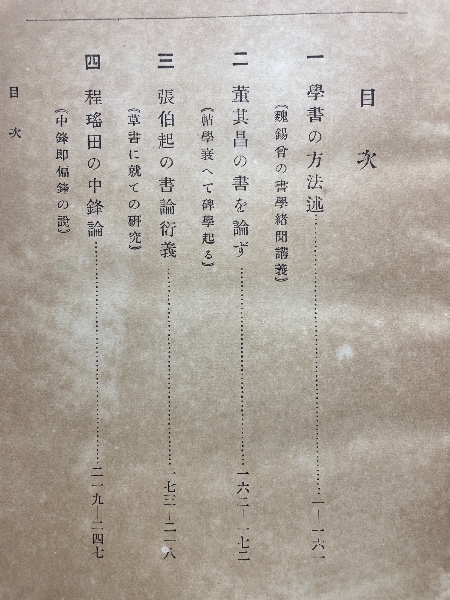 目次
一 學書の方法述……一―一六一
(魏錫曾の書學緒聞講義)
二 董其昌の書を論ず……一六二―一七二
(帖學衰へて碑學起る)
三 張伯起の書論衍義……一七三―二一八
(草書に就ての研究)
四 程瑤田の中鋒論……二一九―二四七
(中鋒即偏鋒の說)
目次